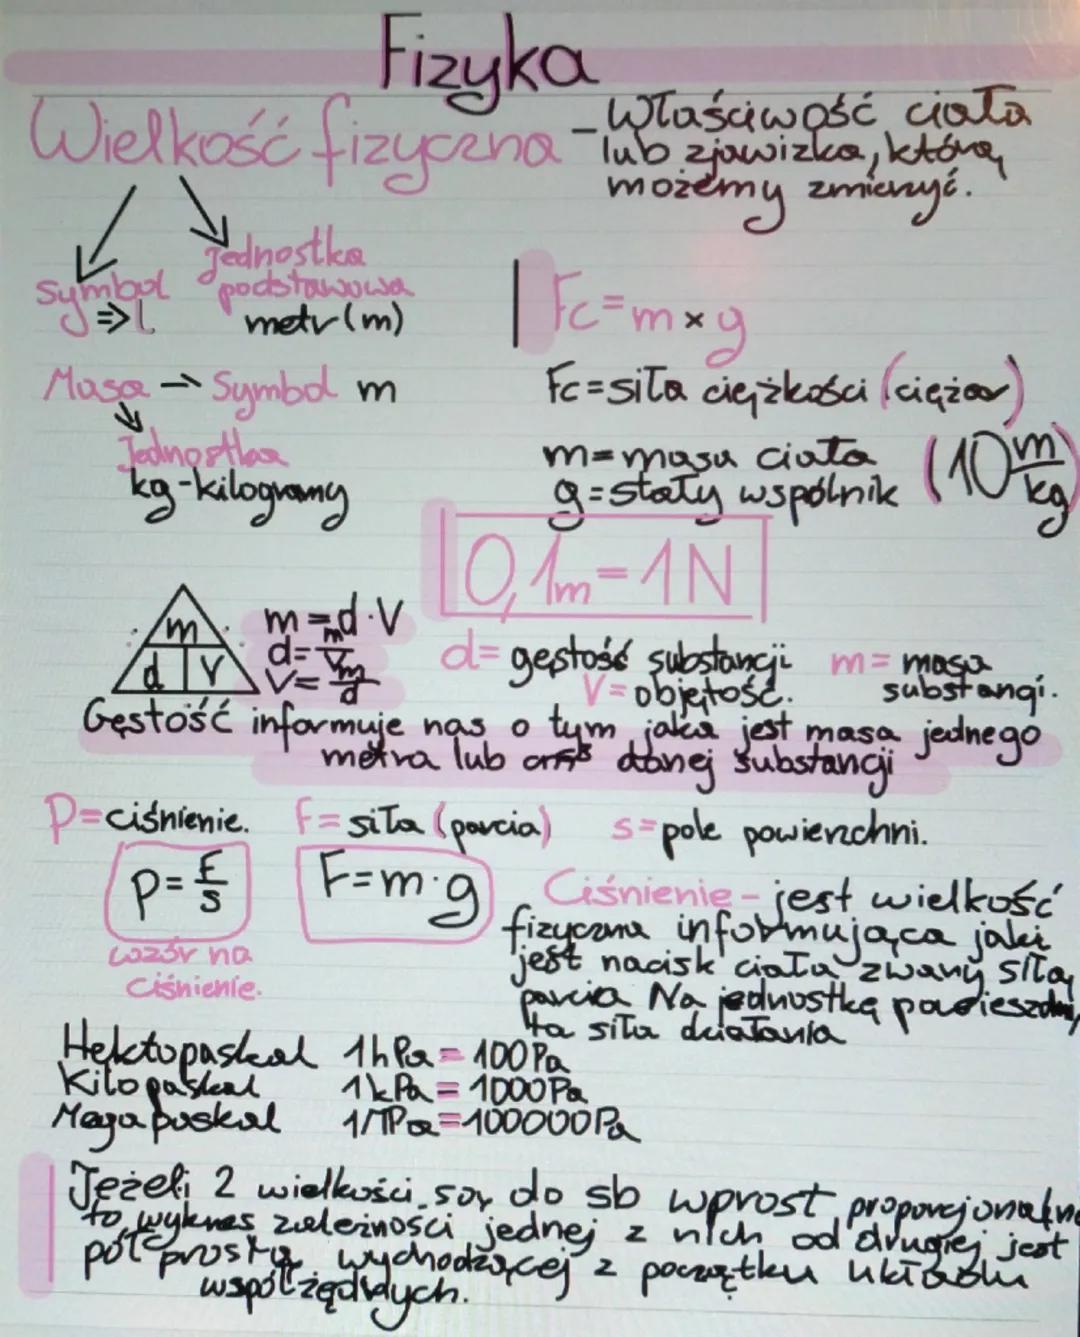 Fizyka
Wielkość fizyczna - Właściwość ciała
lub zjawizka, którą
możemy zmierzyć.
Symbol
=> l
Jednostka
podstawowa
metr (m)
Fc=m×g
Masa → Symbol m
Jednostka
kg-kilogramy
Fc=siła ciężkości (ciężar)
m=masa ciała
g=stały współnik (10 m/kg)
0,1m=1N
m
d V
m=d·V
d=m/V
V=m/d
d= gęstość substancji m= masa
V= objętość. substangi.
Gęstość informuje nas o tym jaka jest masa jednego
metra lub danej substancji
P=ciśnienie. F=siła (parcia) s=pole powierzchni.
p=F/s
F=m·g
wzór na
ciśnienie.
Ciśnienie - jest wielkość
fizyczna informująca jaki
jest nacisk ciała zwany siłą
parcia Na jednostkę
ta siła działania
Hektopaskal 1hPa=100Pa
Kilopaskal 1kPa=1000Pa
Megapaskal 1MPa=100000Pa
Jeżeli 2 wielkości są do sb wprost
to wykres zależności jednej z nich od drugiej jest
pół prostą wychodzącej z początku układu
współrzędnych.